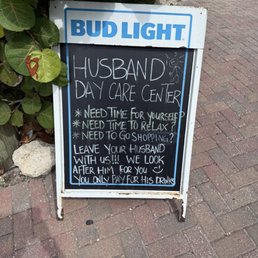 BUD LIGHT
HUSBAND
DAY CARE CENTER
* NEED TIME FOR YOURSELF
* NEED TIME TO RELAX?
* NEED TO GO SHOPPING?
LEAVE YOUR HUSBAND
WITH US!!! WE LOOK
AFTER HIM FOR YOU
YOU ONLY PAY FOR HIS DRINKS